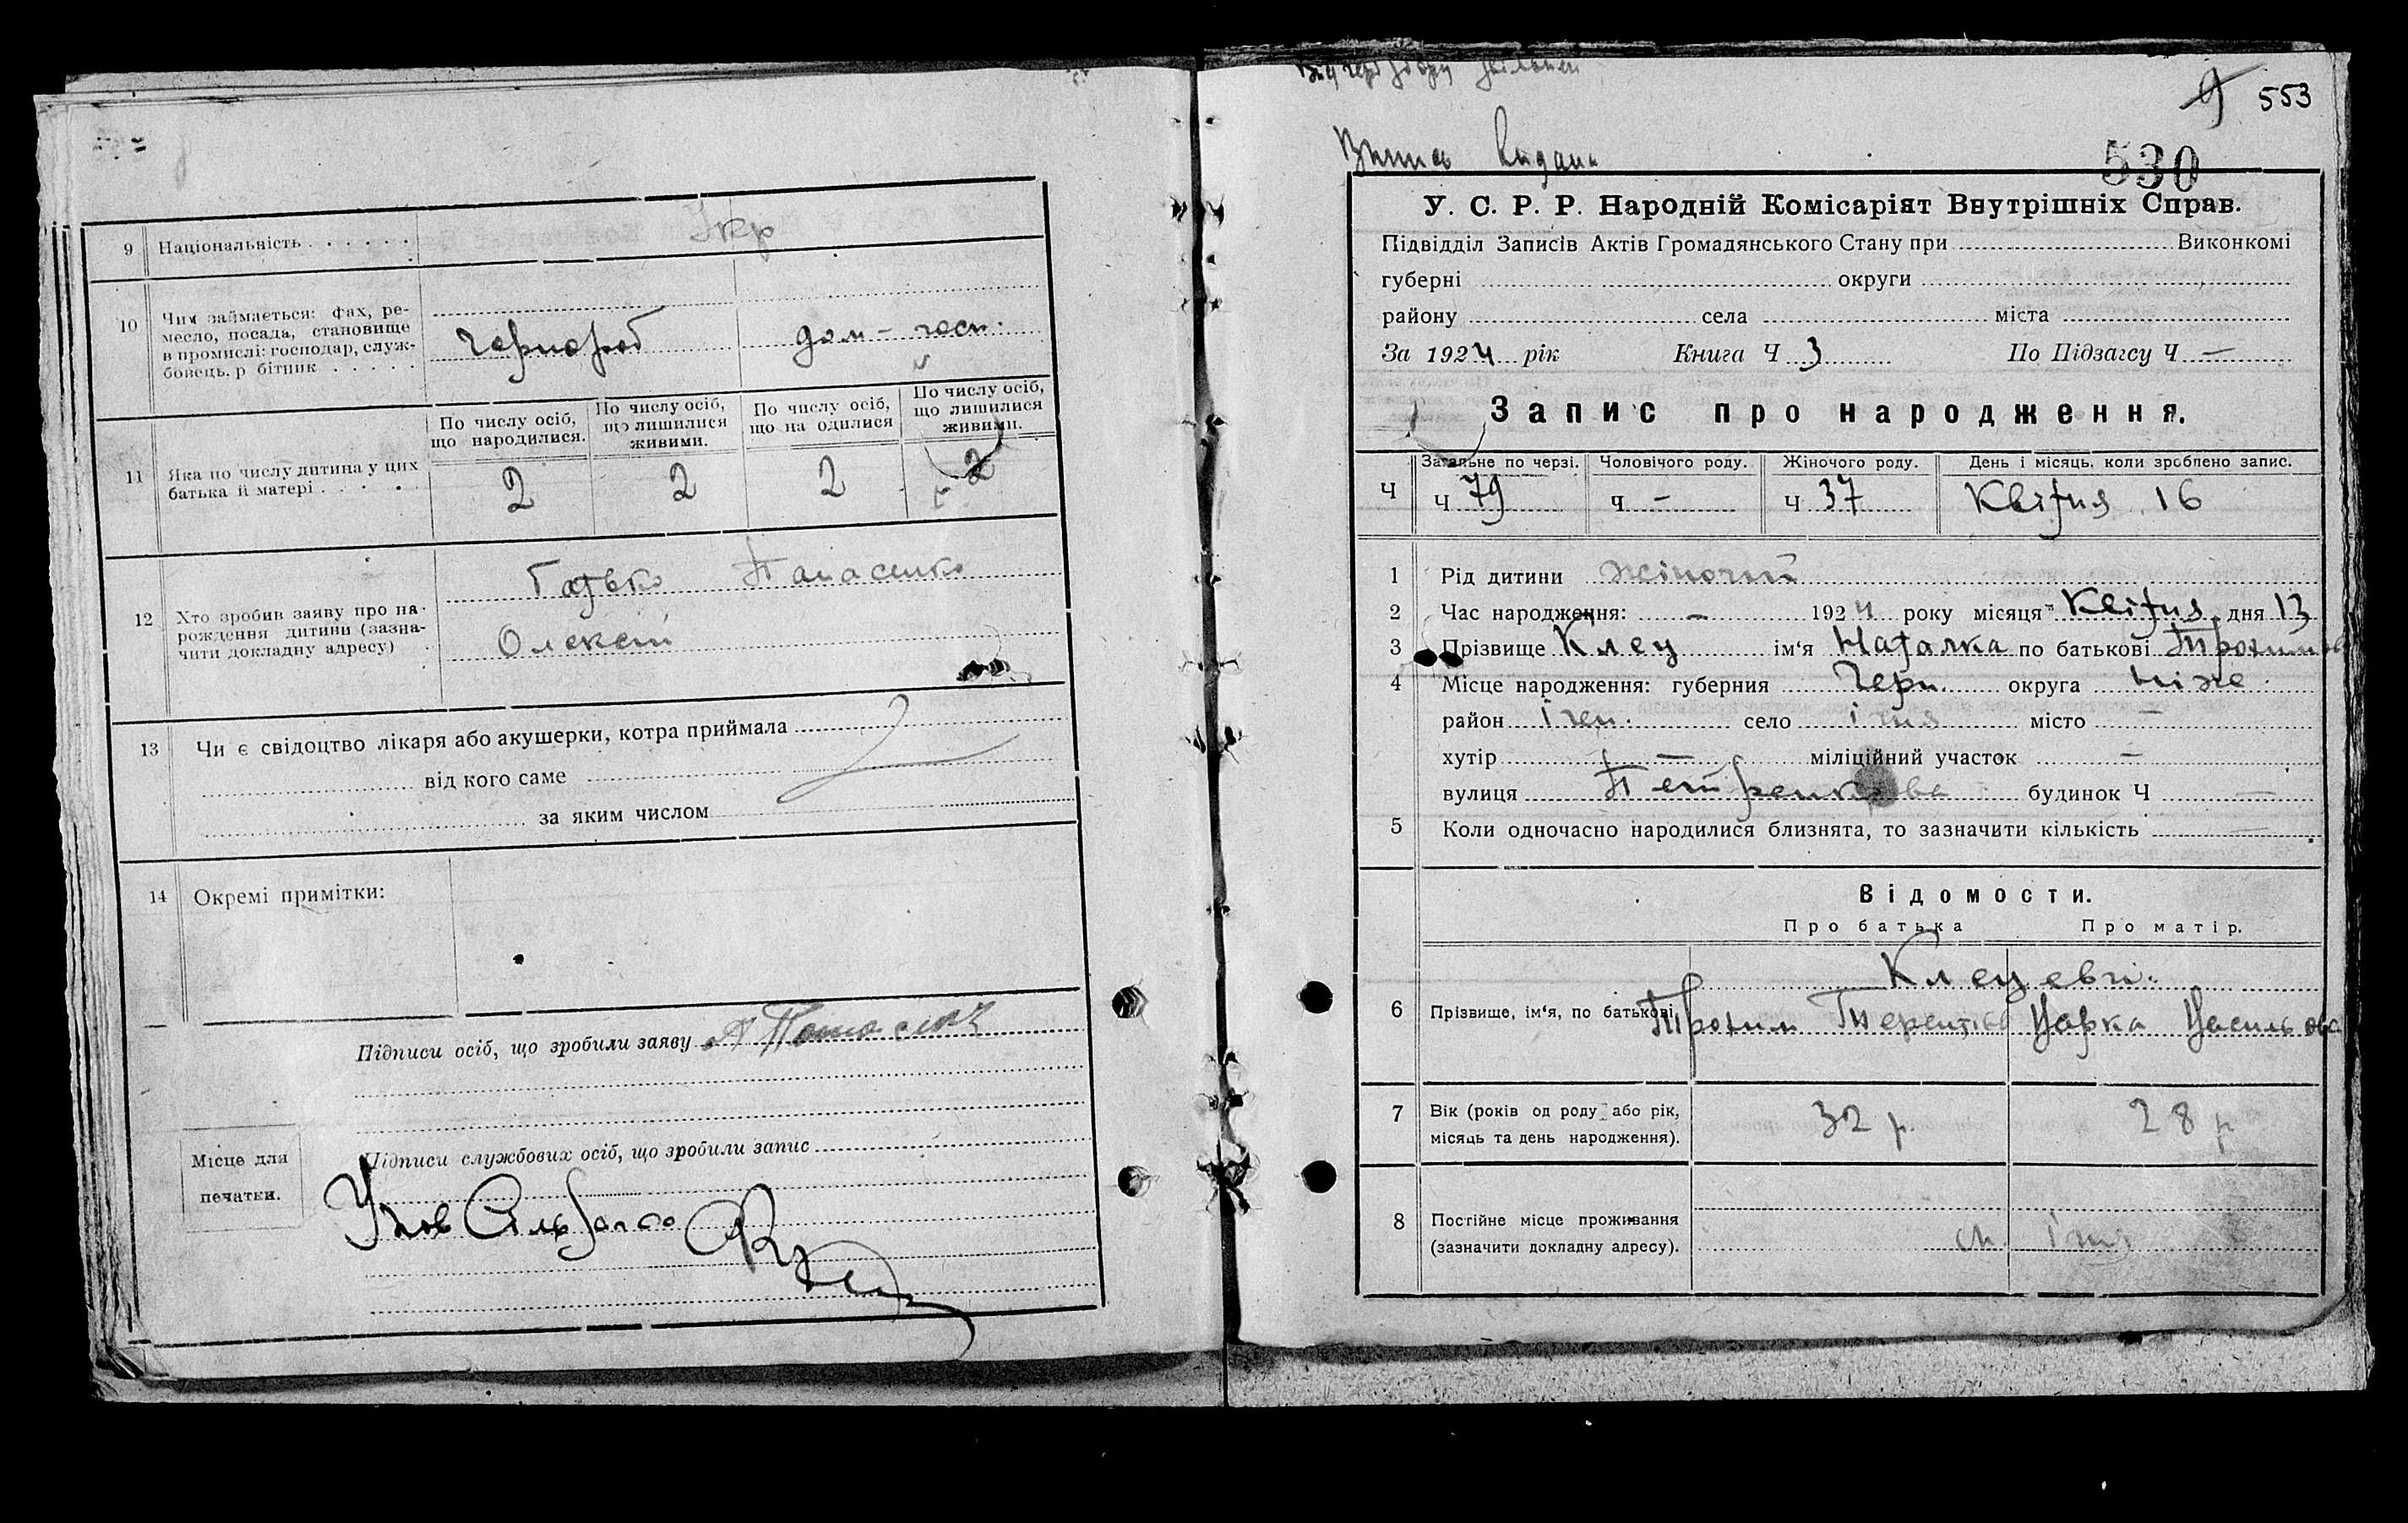 9 Національність . . . . . . Укр
10 Чим займається: фах, ре-
месло, посада, становище
в промислі: господар, служ-
бовець. р бітник . . . . .
чорнороб дом – госп.
11 Яка по числу дитина у цих
батька й матері . . . .
По числу осіб,
що народилися.
По числу осіб,
що лишилися
живими.
По числу осіб,
що на одилися
По числу осіб,
що лишилися
живими.
2 2 2 2
12 Хто зробив заяву про на-
рождення дитини (зазна-
чити докладну адресу) .
Батько Панасенко
Олексій
13 Чи є свідоцтво лікаря або акушерки, котра приймала
від кого саме
за яким числом
14 Окремі примітки:
Підписи осіб, що зробили заяву
Підписи службових осіб, що зробили запис
Місце для
печатки.
9 553
Випис видано
530
У. С. Р. Р. Народній Комісаріят Внутрішніх Справ.
Підвідділ Записів Актів Громадянського Стану при Виконкомі
губерні округи
району села міста
За 1924 рік Книга Ч 3 По Підзагсу Ч —
Запис про народження.
Ч
Загальне по черзі. Чоловічого роду. Жіночого роду. День і місяць, коли зроблено запис.
Ч 79 Ч – Ч 37 Квітня 16
1 Рід дитини жіночий
2 Час народження: – 1924 року місяця Квітня дня 13
3 Прізвище Клец ім'я Наталка по батькові Трохимов
4 Місце народження: губерния Черн. округа Ніже.
район Ічен. село Ічня місто —
хутір — міліційний участок —
вулиця Петренкова будинок Ч —
5 Коли одночасно народилися близнята, то зазначити кількість —
Відомости.
Про батька Про матір.
Клецеві.
6 Прізвище, ім'я, по батькові Трохим Терентієв Варка Василівна
7 Вік (років од роду або рік,
місяць та день народження).
32 р. 28 р
8 Постійне місце проживання
(зазначити докладну адресу).
м. Ічня